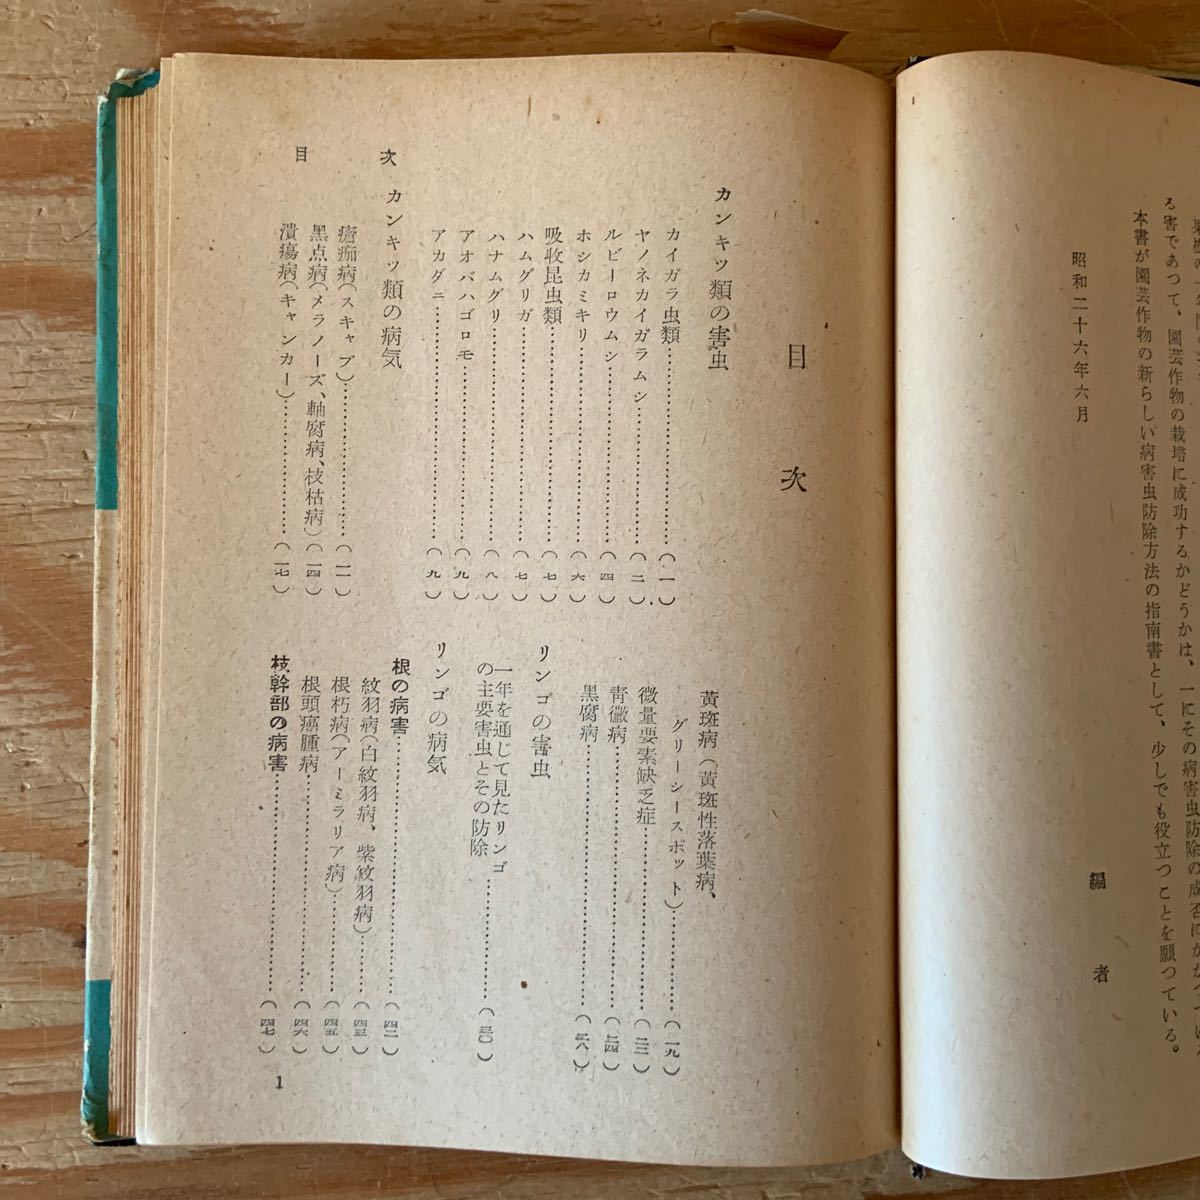 る害であつて、園芸作物の栽培に成功するかどうかは、一にその病害虫防除の成否にかかつている
本書が園芸作物の新らしい病害虫防除方法の指南書として、少しでも役立つことを願つている。
昭和二十六年六月
編者
目次
カンキツ類の害虫
カイガラ虫類……(一)
ヤノネカイガラムシ……(二)
ルビーロウムシ……(四)
ホシカミキリ……(六)
吸収昆虫類……(七)
ハムグリガ……(七)
ハナムグリ……(八)
アオバハゴロモ……(九)
アカダニ……(九)
カンキツ類の病気
瘡痂病(スキャブ)……(一一)
黒点病(メラノーズ、軸腐病、枝枯病)(一四)
潰瘍病(キャンカー)……(一七)
黄斑病(黄斑性落葉病、
グリーシースポット)……(一九)
微量要素缺乏症……(二三)
青黴病……(二四)
黒腐病……(二八)
リンゴの害虫
一年を通じて見たリンゴ
の主要害虫とその防除……(三〇)
リンゴの病気
根の病害……(四二)
紋羽病(白紋羽病、紫紋羽病)……(四三)
根朽病(アーミラリア病)……(四五)
根頭癌腫病……(四六)
枝幹部の病害……(四七)
目次
1